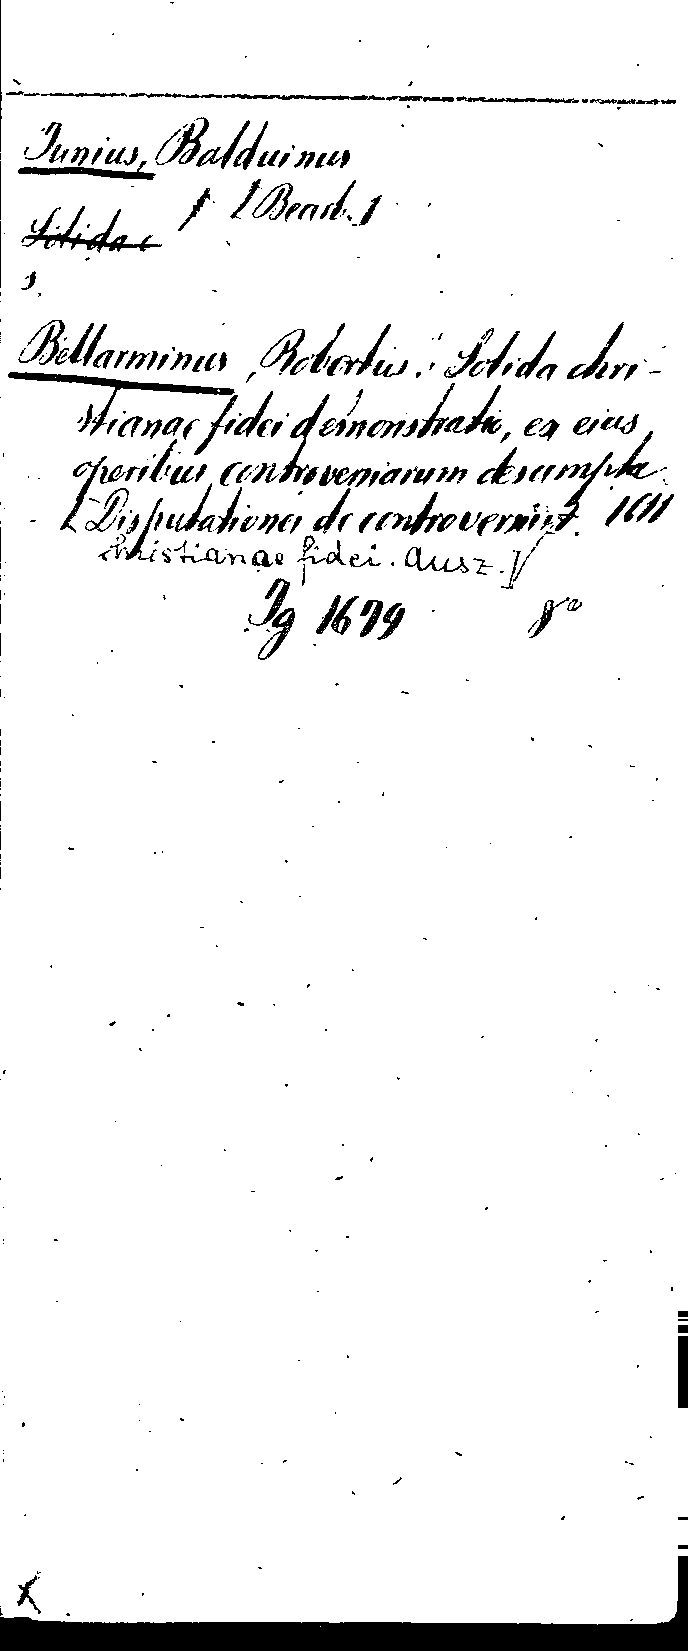 Junius, Balduinus
[Bearb.]
Solida c
s.
Bellarminus, Robertus: Solida chri-
stianae fidei demonstratio, ex eius
operibus controversiarum desumpta.
[Disputationes de controversiis. 1611
christianae fidei. Ausz.]
Jg 1679 8°